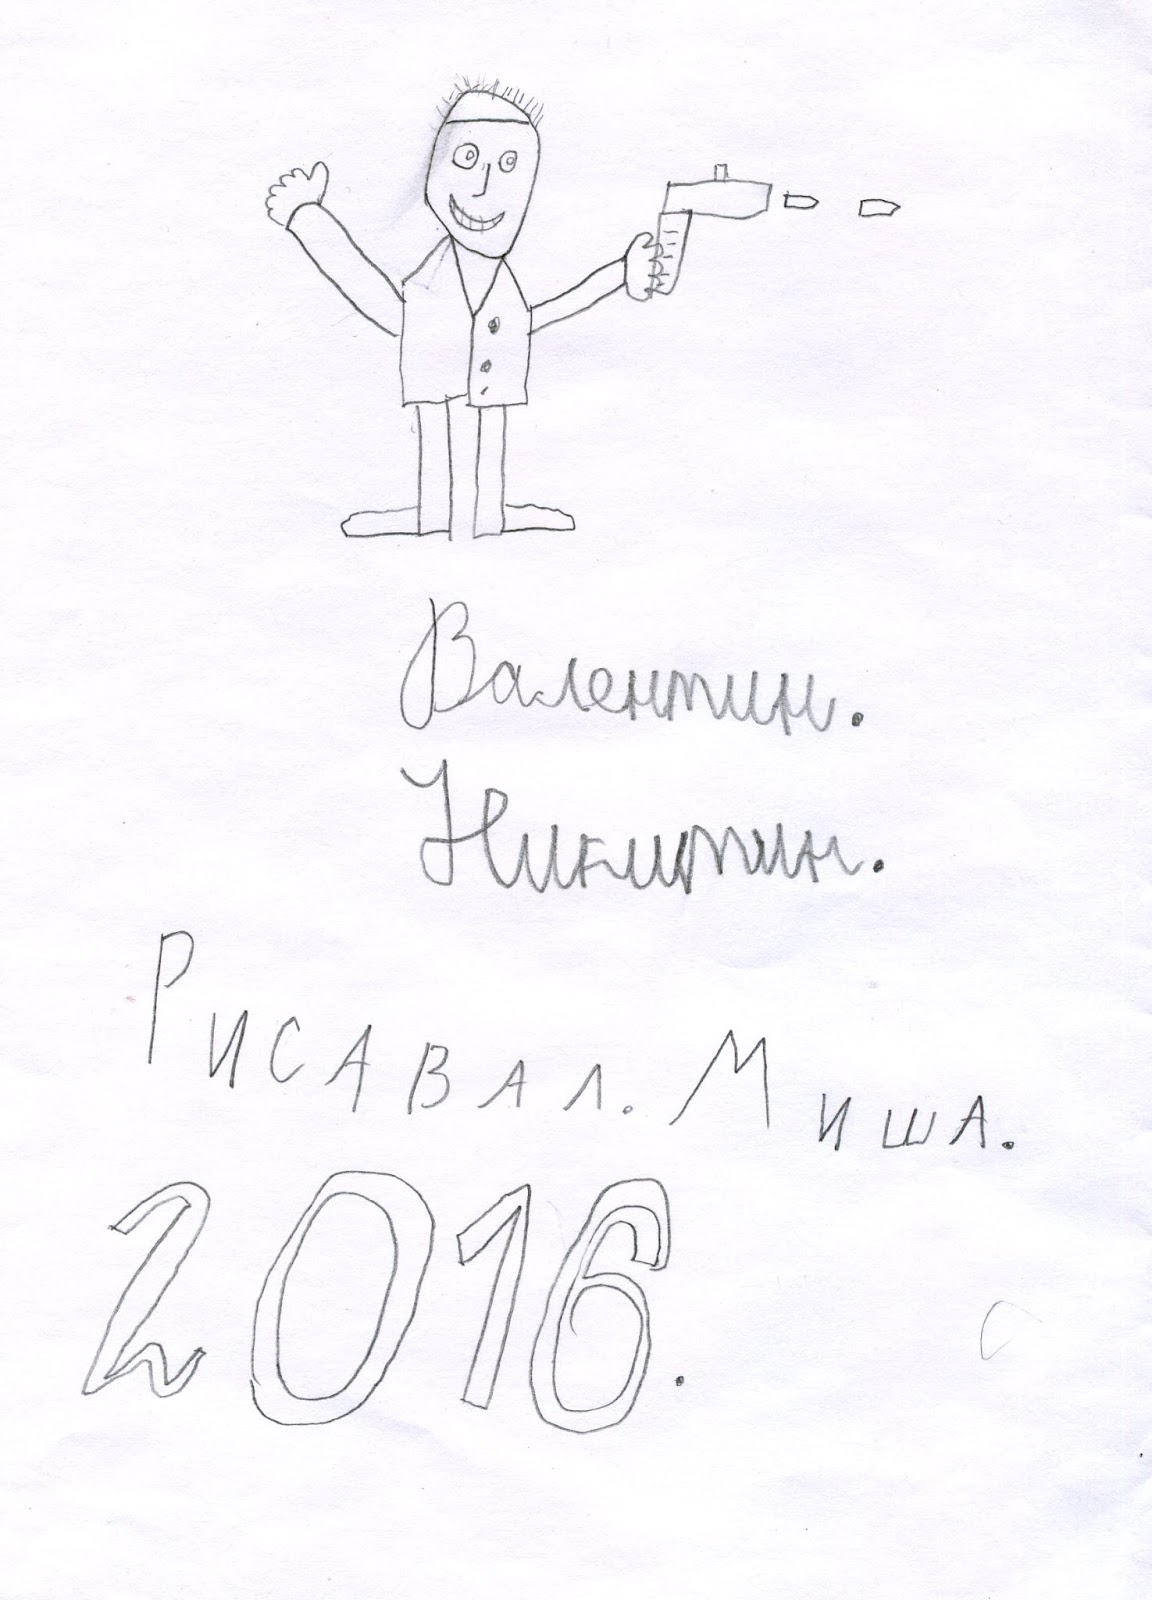 Валентин.
Никитин.
Рисавал. Миша.
2016.